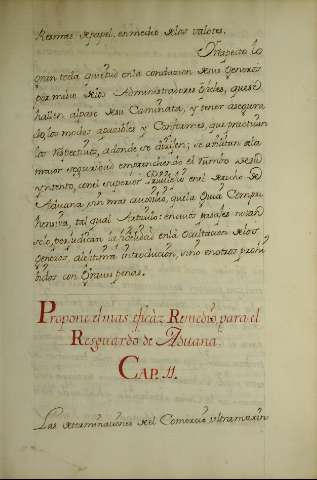 Resmas de papel, en medio de los valores.
Respecto lo
gran toda quietud en la conduzion de sus Generos
por mi de los Administradores que se
hallen al paso de su Caminata, y tener asegura
do, los modos apacibles y Conformes, que practican
los Respectivos, a donde se dirijen; se
maior seguridad emprehenden el rumbo de su
yntento, con el superior
Aduana sin mas que la Guia Compre
hensiva, tal qual Articulo: en cuios parajes no tan
solo, perjudican la en la Ocultacion de los
Generos, de ilizitima introduccion, sino en otros prohi
bidos con Graves penas.
Propone el mas eficáz Remedio para el
Resguardo de Aduana.
CAP. 11.
Las determinaciones del Comercio ultramarin